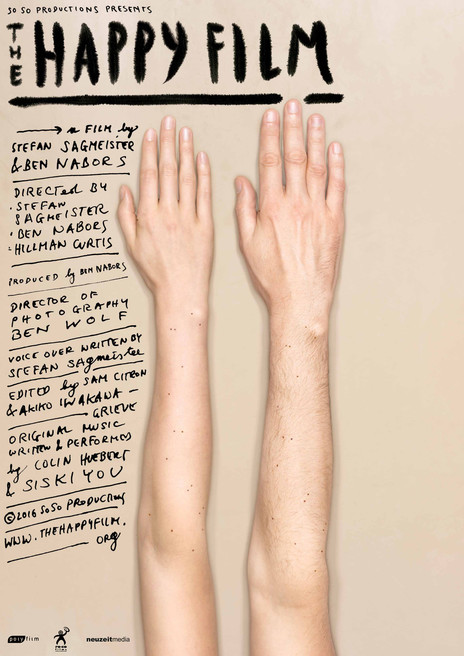 SO SO PRODUCTIONS PRESENTS
THE HAPPY FILM
a FILM by
STEFAN SAGMEISTER
& BEN NABORS
DIRECTED BY
· STEFAN
SAGMEISTER
· BEN NABORS
· HILLMAN CURTIS
PRODUCED by BEN NABORS
DIRECTOR OF
PHOTOGRAPHY
BEN WOLF
VOICE OVER WRITTEN BY
STEFAN Sagmeister
EDITED by SAM CITRON
& AKIKO IWAKAWA-
GRIEVE
ORIGINAL MUSIC
WRITTEN & PERFORMED
by COLIN HUEBERT
& SISKIYOU
©2016 SOSO PRODUCTIONS
WWW.THEHAPPYFILM.
ORG
polyfilm
neuzeitmedia